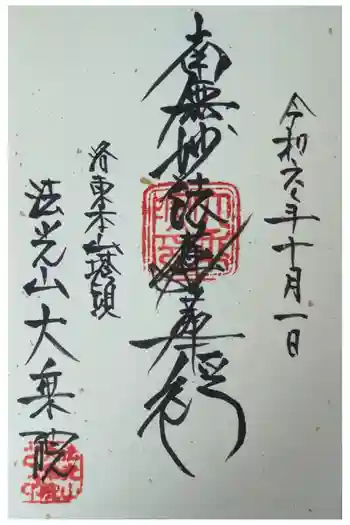 令和元年十月一日
南無妙法蓮華経
洛東本山塔頭
法光山大乗院